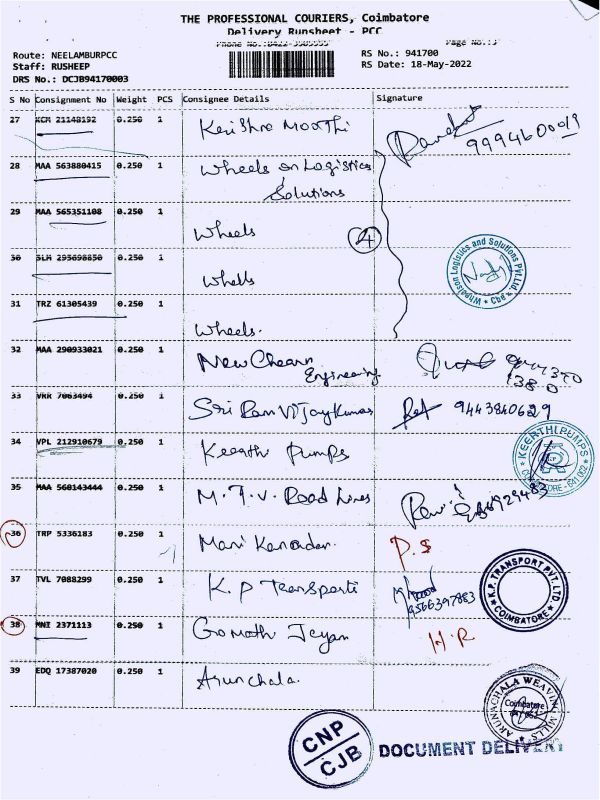 THE PROFESSIONAL COURIERS, Coimbatore
Delivery Runsheet - PCC
Route: NEELAMBURPCC
Staff: RUSHEEP
DRS No.: DCJB94170003
RS No.: 941700
RS Date: 18-May-2022
S No Consignment No Weight PCS Consignee Details Signature
27 KCM 21148192 0.250 1 Krishna Moorthi
9994600019
28 MAA 563880415 0.250 1 Wheels on Logistics
Solutions
29 MAA 565351108 0.250 1 Wheels
4
30 SLM 295698850 0.250 1 Wheels
Wheelson Logistics and Solutions Pvt.Ltd. Cbe
31 TRZ 61305439 0.250 1 Wheels.
32 MAA 290933021 0.250 1 New Chearn
Engineering
33 VRR 7063494 0.250 1 Sri Ram Vijay Kumar 9443840629
34 VPL 212910679 0.250 1 Keerthi Pumps
KEERTHI PUMPS
35 MAA 560143444 0.250 1 M.T.V. Road Lines
36 TRP 5336183 0.250 1 Mani Kandan P.S
37 TVL 7088299 0.250 1 K.P Transports
9566397883
K.P. TRANSPORT PVT. LTD. COIMBATORE
38 MNI 2371113 0.250 1 Gomathi Jeyam H.R
39 EDQ 17387020 0.250 1 Arunchala.
ARUNACHALA WEAVING MILLS Coimbatore
CNP
CJB
DOCUMENT DELIVERY